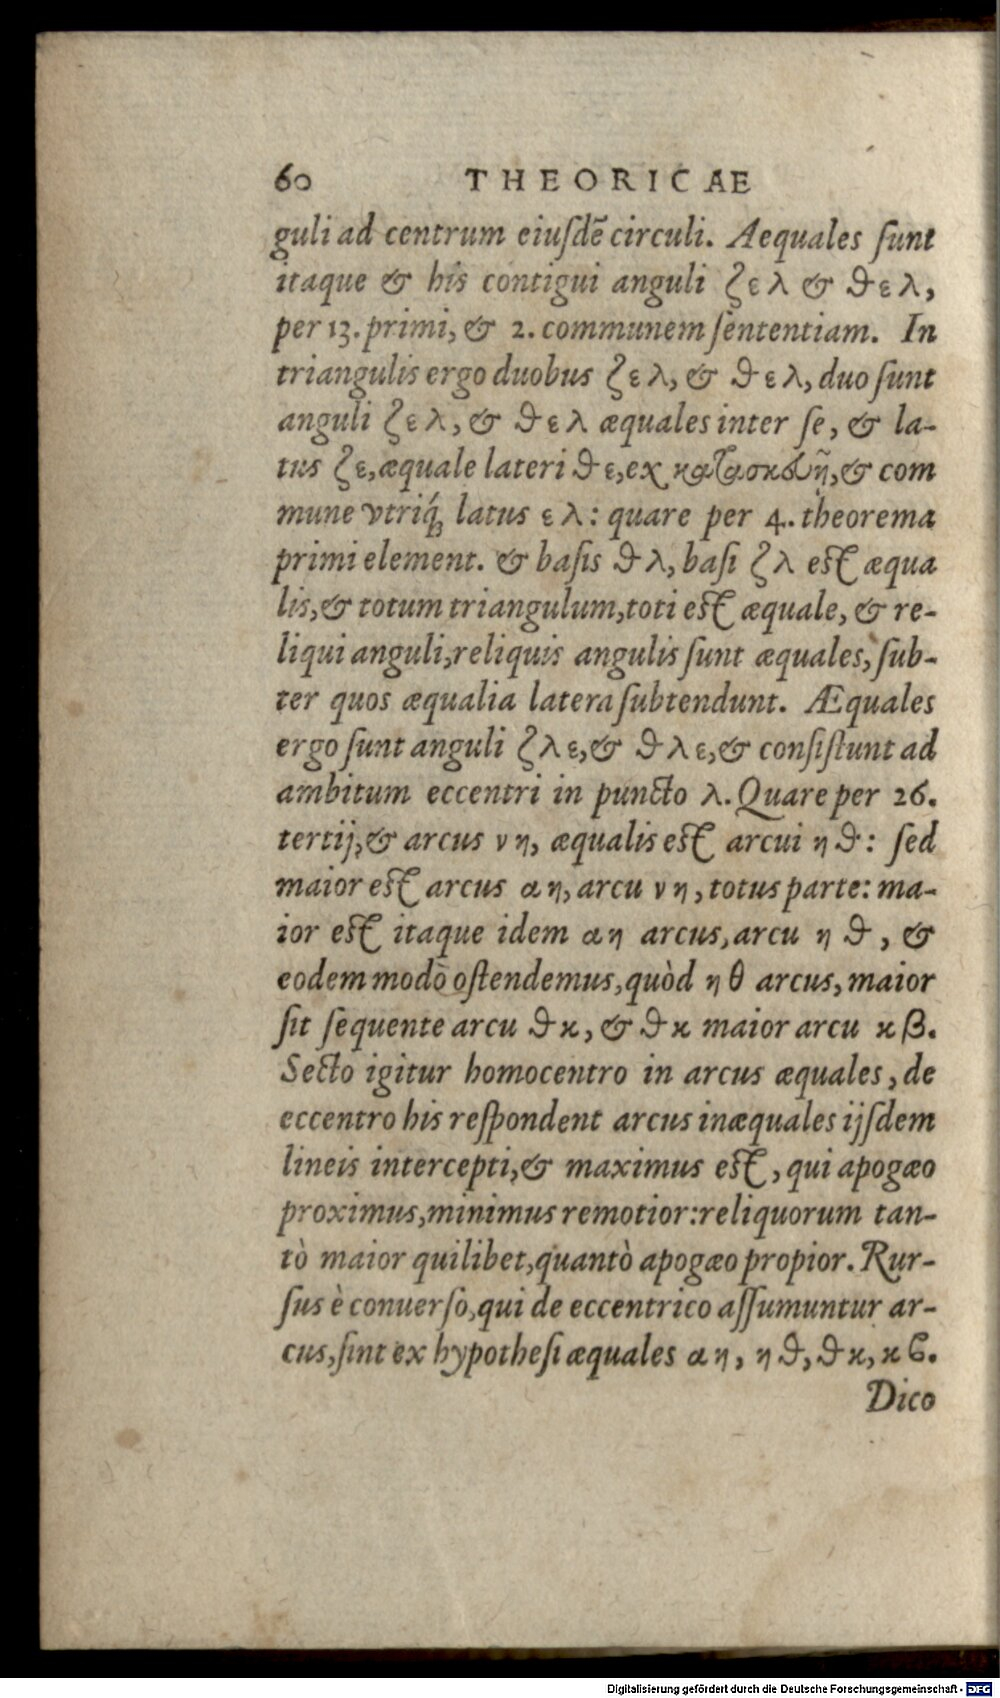 60 THEORICAE
guli ad centrum eiuſdē circuli. Aequales ſunt
itaque & his contigui anguli ζελ & ϑελ,
per 13. primi, & 2. communem ſententiam. In
triangulis ergo duobus ζελ, & ϑελ, duo ſunt
anguli ζελ, & ϑελ æquales inter ſe, & la-
tus ζε, æquale lateri ϑε, ex κατασκευῆ, & com
mune vtriq́; latus ελ: quare per 4. theorema
primi element. & baſis ϑλ, baſi ζλ eſt æqua
lis, & totum triangulum, toti eſt æquale, & re-
liqui anguli, reliquis angulis ſunt æquales, ſub-
ter quos æqualia latera ſubtendunt. Æquales
ergo ſunt anguli ζλε, & ϑλε, & conſiſtunt ad
ambitum eccentri in puncto λ. Quare per 26.
tertij, & arcus νη, æqualis eſt arcui ηϑ: ſed
maior eſt arcus αη, arcu νη, totus parte: ma-
ior eſt itaque idem αη arcus, arcu ηϑ, &
eodem modò oſtendemus, quòd ηθ arcus, maior
ſit ſequente arcu ϑκ, & ϑκ maior arcu κβ.
Secto igitur homocentro in arcus æquales, de
eccentro his reſpondent arcus inæquales ijſdem
lineis intercepti, & maximus eſt, qui apogæo
proximus, minimus remotior: reliquorum tan-
tò maior quilibet, quantò apogæo propior. Rur-
ſus è conuerſo, qui de eccentrico aſſumuntur ar-
cus, ſint ex hypotheſi æquales αη, ηϑ, ϑκ, κϐ.
Dico
Digitalisierung gefördert durch die Deutsche Forschungsgemeinschaft - DFG